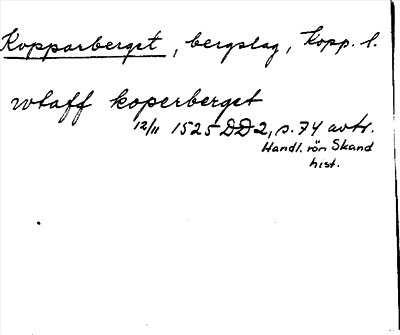 Kopparberget, bergslag, Kopp. l.
wtaff koperberget
12/11 1525 DD2, s. 74 avtr.
Handl. rör Skand
hist.